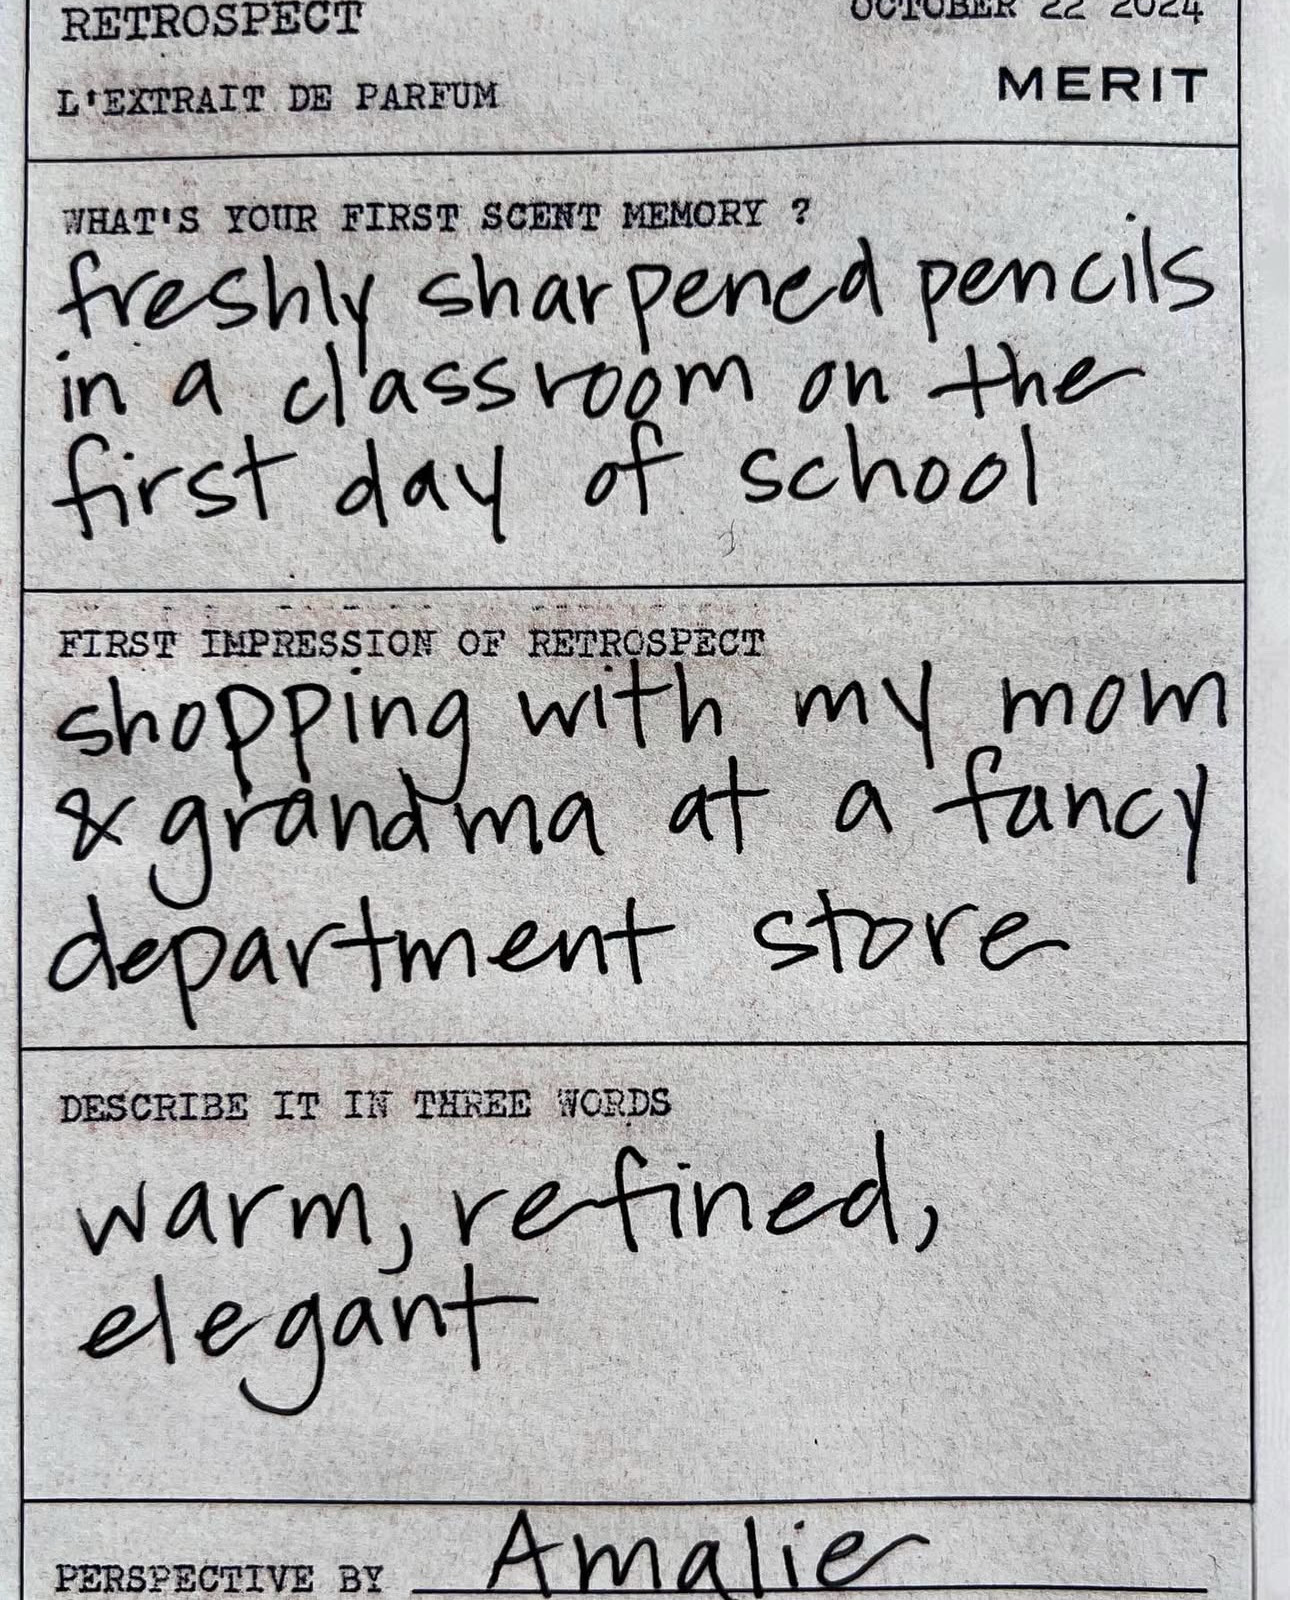 RETROSPECT
OCTOBER 22 2024
L'EXTRAIT DE PARFUM
MERIT
WHAT'S YOUR FIRST SCENT MEMORY ?
freshly sharpened pencils
in a classroom on the
first day of school
FIRST IMPRESSION OF RETROSPECT
shopping with my mom
& grandma at a fancy
department store
DESCRIBE IT IN THREE WORDS
warm, refined,
elegant
PERSPECTIVE BY Amalie